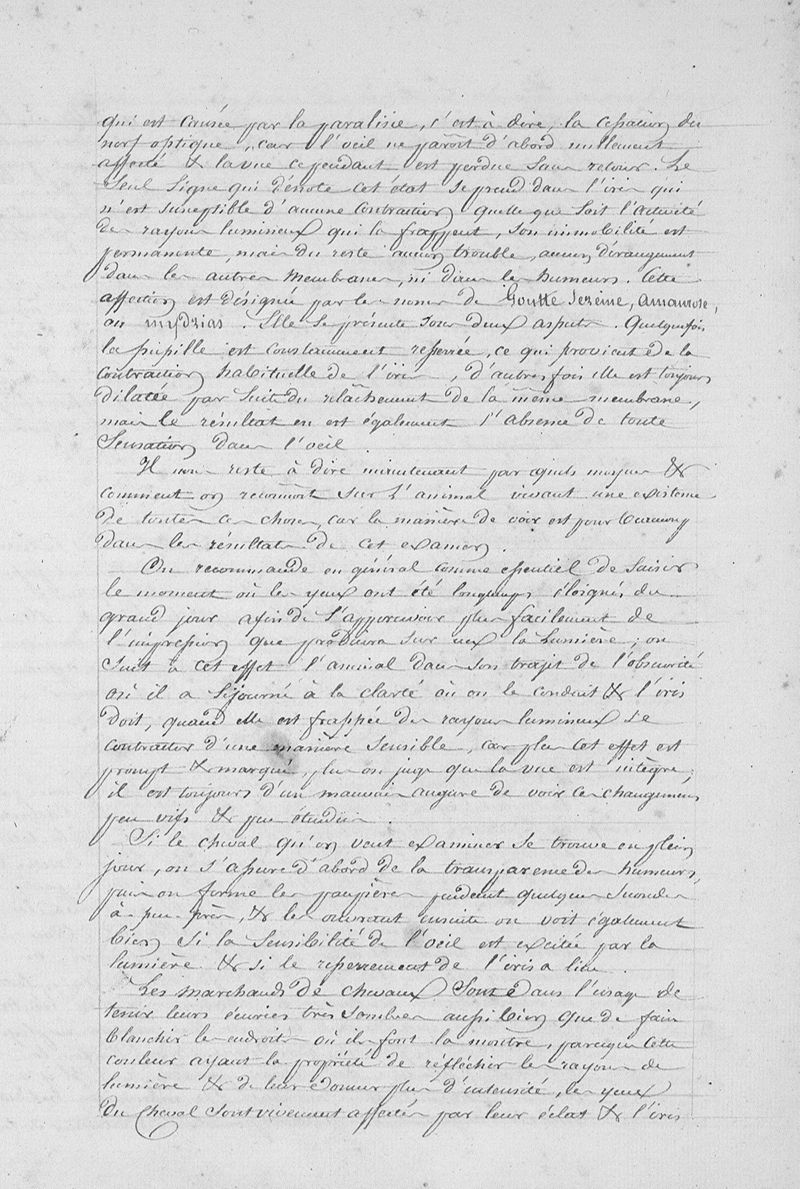 qui est causée par la paralisie, c'est à dire, la cessation du
nerf optique, car l'oeil ne paroit d'abord nullement
affecté & la vue cependant est perdue sans retour. Le
seul signe qui dénote cet état se prend dans l'iris qui
n'est susceptible d'aucune contraction quelle que soit l'activité
des rayons lumineux qui la frappent, son immobilité est
permanente, mais du reste aucun trouble, aucun dérangement
dans les autres membranes, ni dans les humeurs. Cette
affection est désignée par les noms de Goutte Sereine, Amaurose,
ou mydrias. Elle se présente sous deux aspects. Quelquefois
la pupille est constamment resserrée, ce qui provient de la
contraction habituelle de l'iris, d'autres fois elle est toujours
dilatée par suite du relâchement de la même membrane,
mais le résultat en est également l'absence de toute
sensation dans l'oeil.
Il nous reste à dire maintenant par quels moyens &
comment on reconnoit sur l'animal vivant une existence
de toutes ces choses, car la manière de voir est pour beaucoup
dans les résultats de cet examen.
On recommande en général comme essentiel de saisir
le moment où les yeux ont été longtemps éloignés du
grand jour afin de s'appercevoir plus facilement de
l'impression que produira sur eux la lumière; on
suit à cet effet l'animal dans son trajet de l'obscurité
où il a séjourné à la clarté où on le conduit & l'iris
doit, quand elle est frappée des rayons lumineux se
contracter d'une manière sensible, car plus cet effet est
prompt & marqué, plus on juge que la vue est intègre;
il est toujours d'un mauvais augure de voir ces changemens
peu vifs & peu étendus.
Si le cheval qu'on veut examiner se trouve en plein
jour, on s'assure d'abord de la transparence des humeurs,
puis on ferme les paupières pendant quelques secondes
à peu près, & les ouvrant ensuite on voit également
bien si la sensibilité de l'oeil est excitée par la
lumière & si le resserrement de l'iris a lieu.
Les marchands de chevaux sont dans l'usage de
tenir leurs écuries très sombres aussi bien que de faire
blanchir les endroits où ils font la montre, parceque cette
couleur ayant la propriété de réfléchir les rayons de
lumière & de leur donner plus d'intensité, les yeux
du cheval sont vivement affectés par leur éclat & l'iris